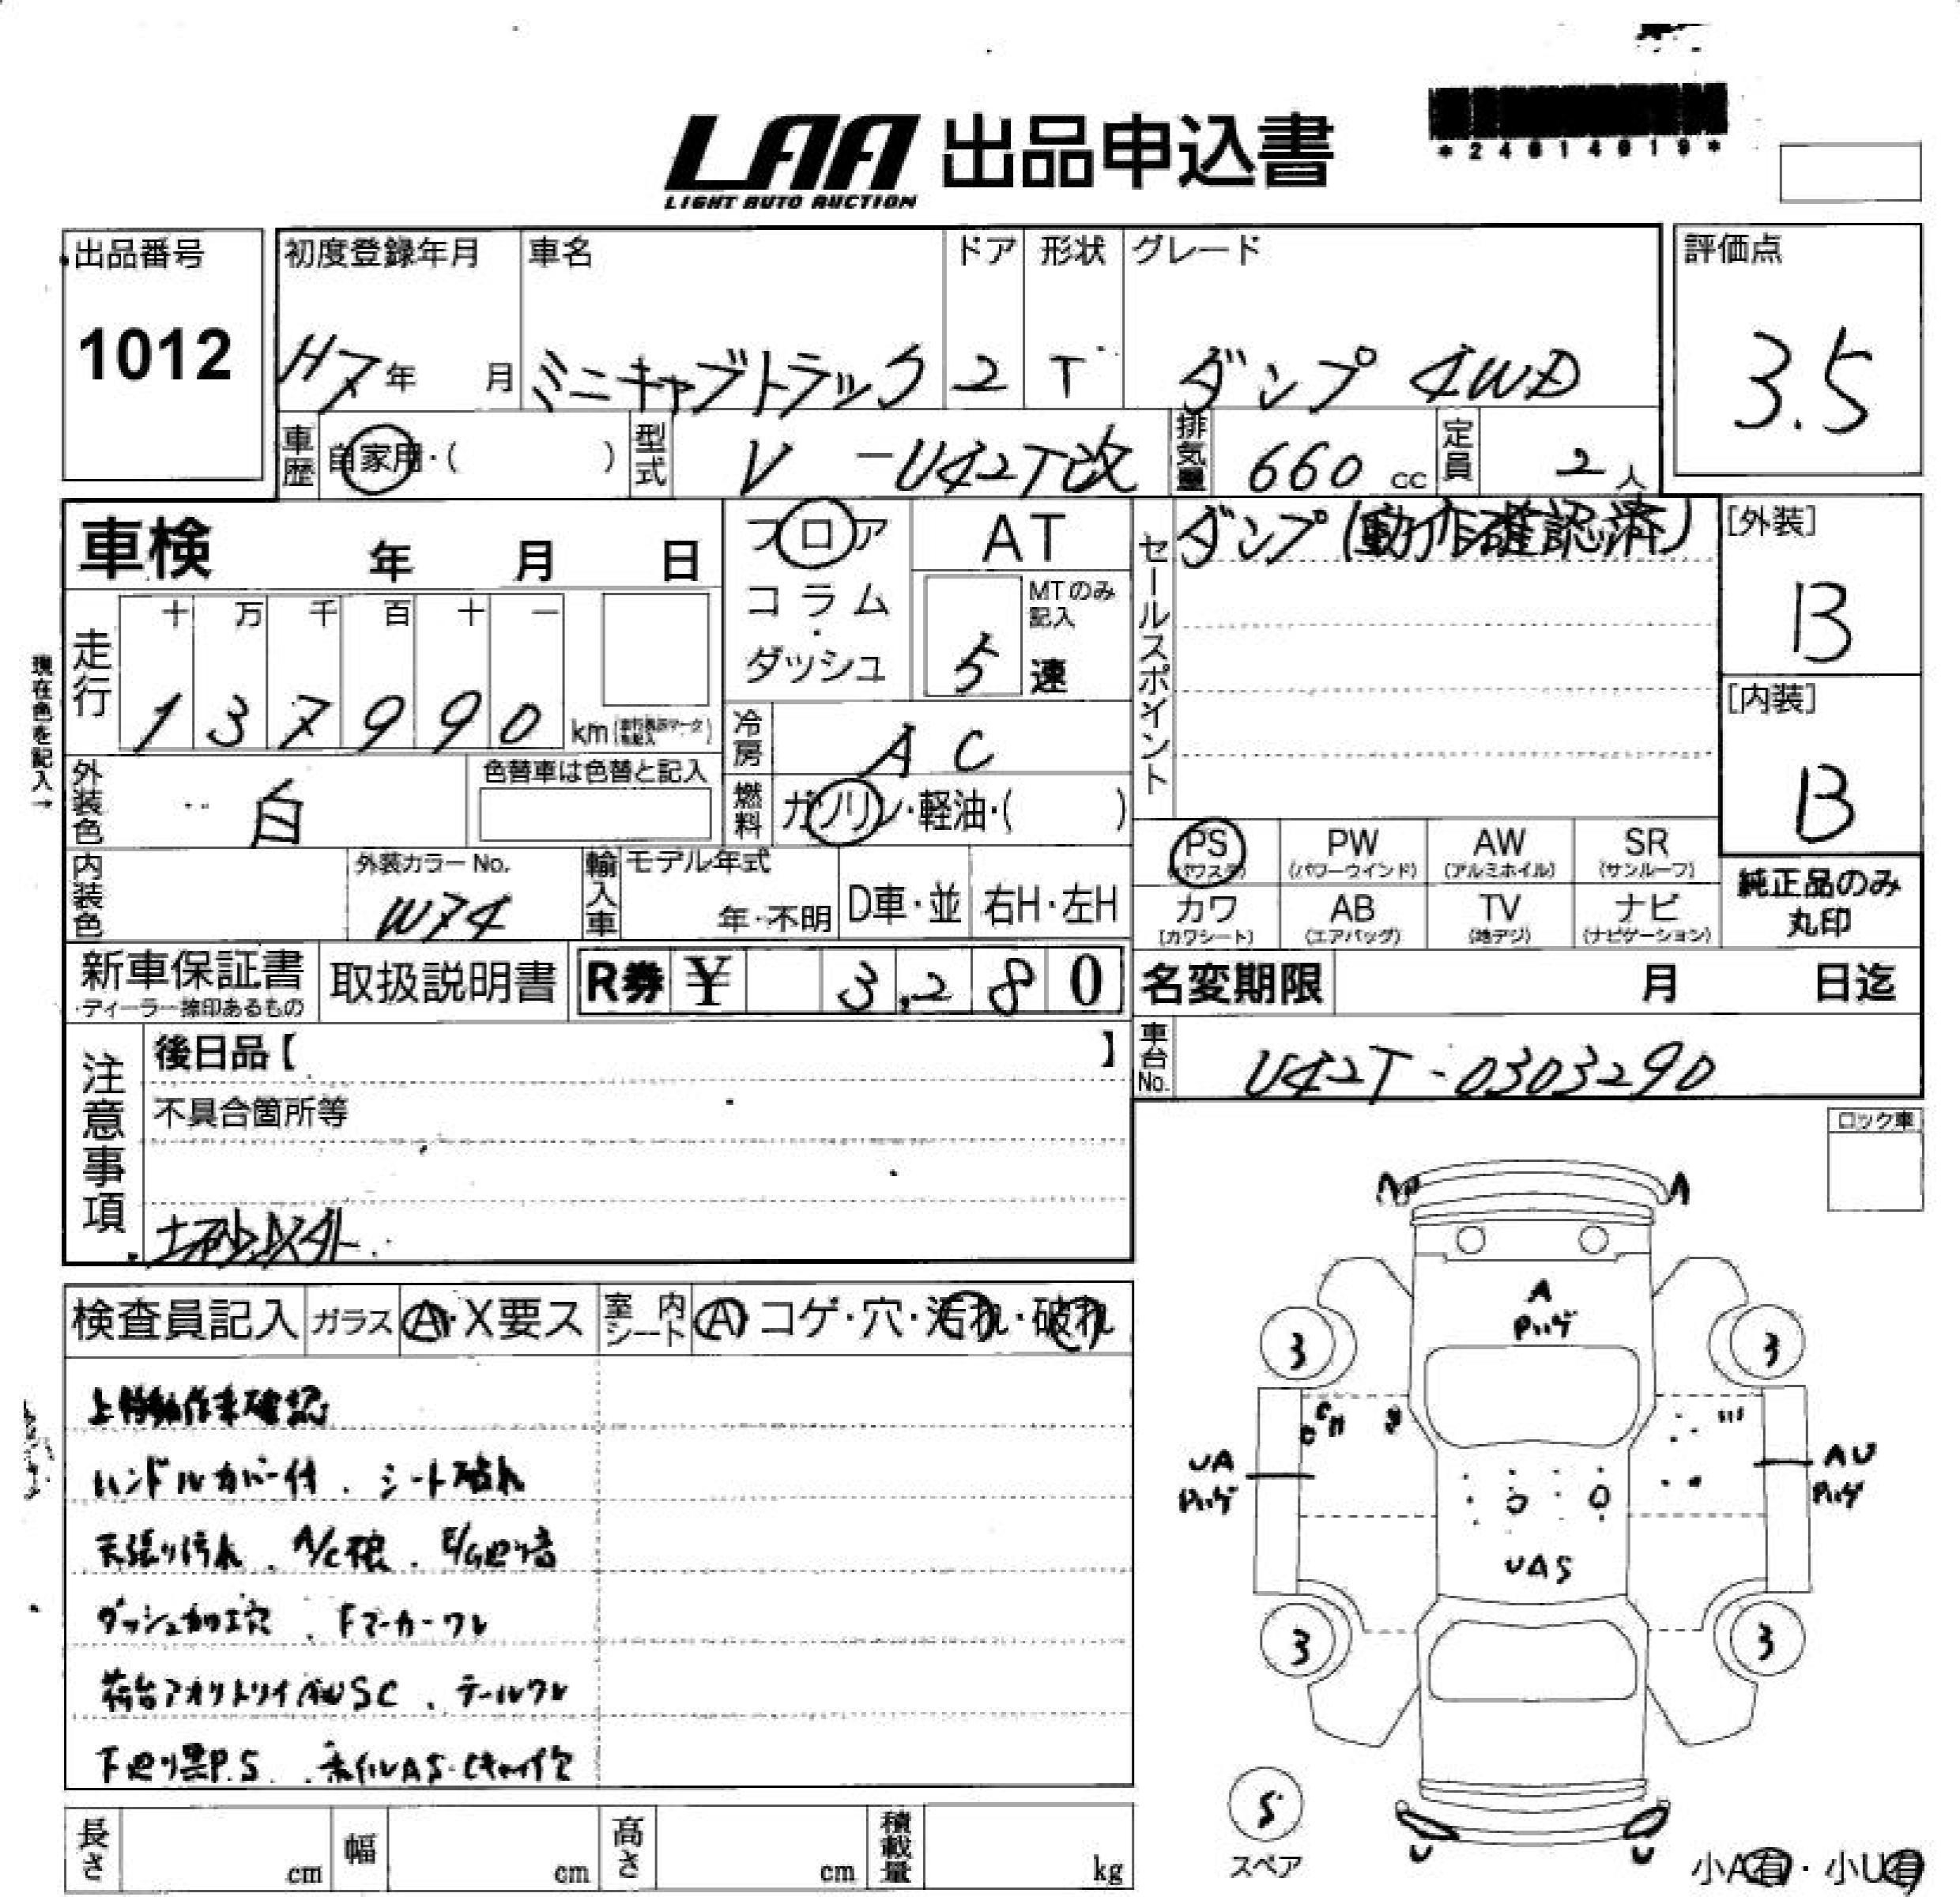 LAA 出品申込書
LIGHT AUTO AUCTION
*24014019*
出品番号
1012
初度登録年月
H7年 月
車名
ミニキャブトラック
ドア
2
形状
T
グレード
ダンプ 4WD
評価点
3.5
車歴 自家用・( )
型式 V -U42T改
排気量 660 cc
定員 2人
車検 年 月 日
フロア
コラム
・
ダッシュ
AT
MTのみ記入
5 速
セールスポイント
ダンプ(動作確認済)
[外装]
B
[内装]
B
現在色を記入→
走行
十 万 千 百 十 一
1 3 7 9 9 0 km
冷房 AC
外装色 白
色替車は色替と記入
燃料 ガソリン・軽油・( )
PS (パワステ)
PW (パワーウインド)
AW (アルミホイル)
SR (サンルーフ)
カワ (カワシート)
AB (エアバッグ)
TV (地デジ)
ナビ (ナビゲーション)
純正品のみ
丸印
内装色
外装カラーNo.
W74
輸入車
モデル年式
年・不明
D車・並
右H・左H
新車保証書
・ディーラー捺印あるもの
取扱説明書
R券 ¥ 3,280
名変期限 月 日迄
車台No. U42T-0303290
注意事項
後日品【 】
不具合箇所等
土砂以外
ロック車
検査員記入
ガラス A・X要ス
室内シート A コゲ・穴・汚れ・破れ
上物動作未確認
ハンドルカバー付 . シート破れ
天張り汚れ . A/C . E/G廻り音
ダッシュ加工穴 . Fマーカーワレ
荷台アオリトリイ SC . テールワレ
下廻り黒P.S .
A
Pハゲ
3
3
UA
Pハゲ
AU
Pハゲ
UAS
3
3
S
スペア
U
U
長さ cm
幅 cm
高さ cm
積載量 kg
小A有・小U有